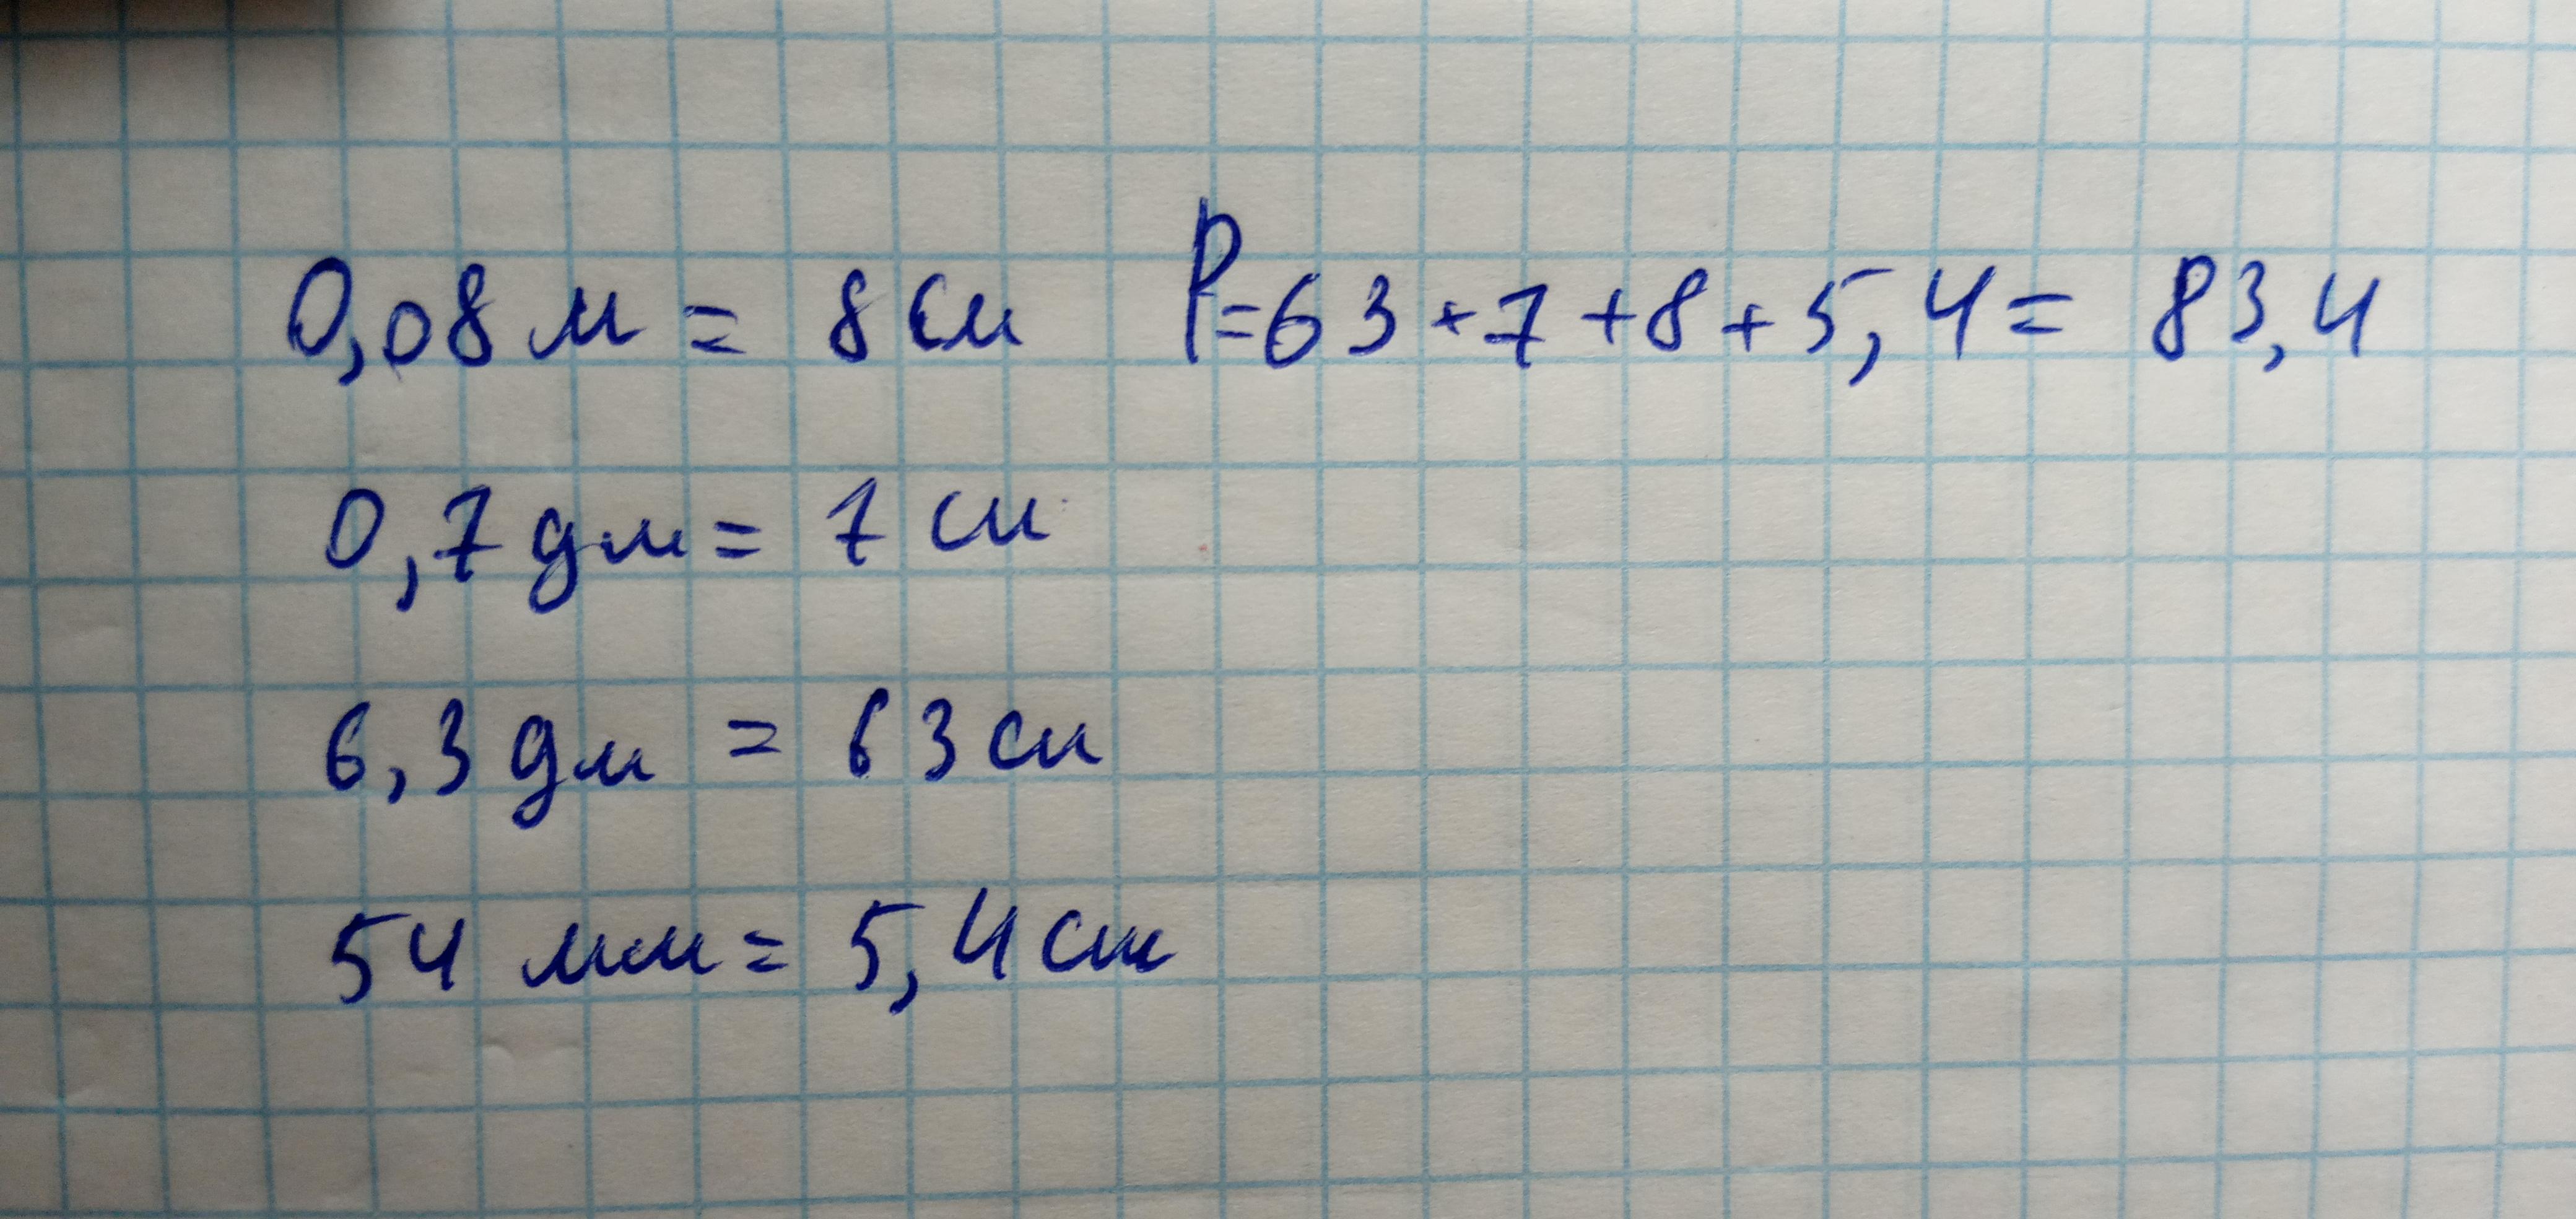 0,08 м = 8 см P=63+7+8+5,4= 83,4
0,7 дм = 7 см
6,3 дм = 63 см
54 мм = 5,4 см